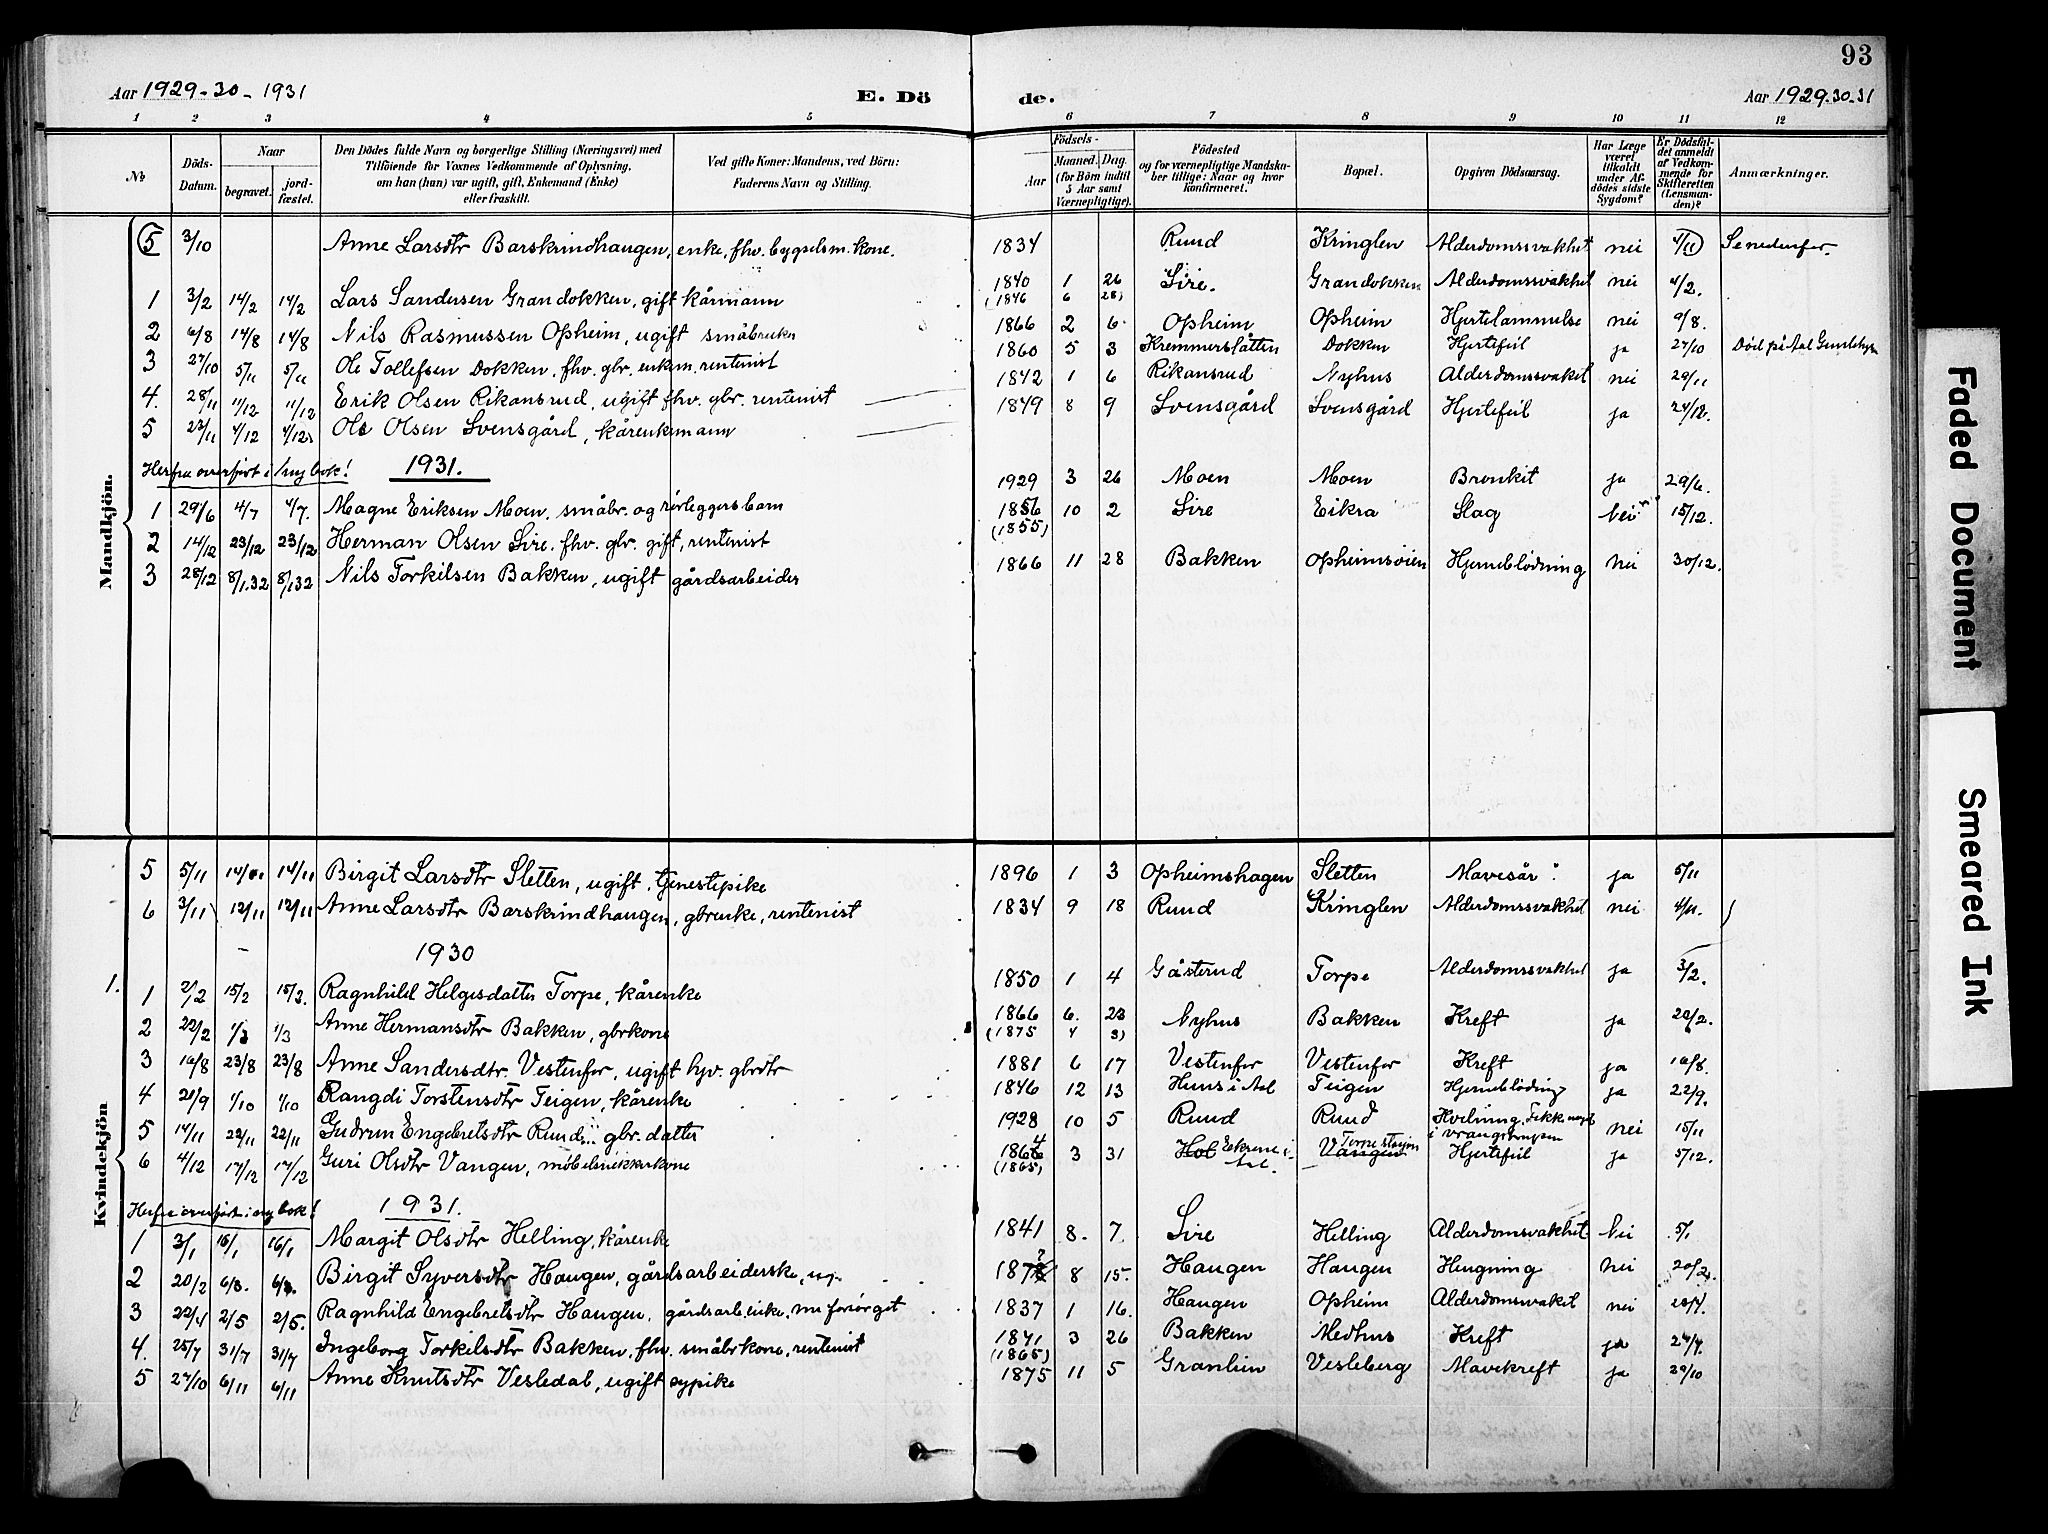 93
Aar 1929-30-1931
E. Dö
de.
Aar 1929-30-31
1 2 3 4 5 6 7 8 9 10 11 12
№
Döds-Datum.
Naar
begravet.
jord-fæstet.
Den Dödes fulde Navn og borgerlige Stilling (Næringsvei) med
Tilföiende for Voxnes Vedkommende af Oplysning,
om han (hun) var ugift, gift, Enkemand (Enke)
eller fraskilt.
Ved gifte Koner: Mandens, ved Börn:
Faderens Navn og Stilling.
Födsels-
Aar
Maaned. Dag.
(for Börn indtil
5 Aar samt
Værnepligtige).
Födested
og for værnepligtige Mandska-
ber tillige: Naar og hvor
konfirmeret.
Bopæl.
Opgiven Dödsaarsag.
Har Læge
været
tilkaldt
under Af-
dödes sidste
Sygdom?
Er Dödsfal-
det anmeldt
af Vedkom-
mende for
Skifteretten
(Lensman-
den)?
Anmærkninger.
Mandkjön.
5 3/10 Anne Larsdtr Barskrindhaugen, enke, fhv. bygselsm. kone. 1834 Ruud Kringlen Alderdomssvakhet nei 4/11 Se nedenfor.
1 3/2 14/2 14/2 Lars Sandersen Grandokken, gift kårmann 1840 1 26 (1846 6 28) Sire. Grandokken Alderdomssvakhet nei 4/2.
2 6/8 14/8 14/8 Nils Rasmussen Opheim, ugift småbruker 1866 2 6 Opheim Opheim Hjertelammelse nei 9/8.
3 27/10 5/11 5/11 Ole Tollefsen Dokken, fhv. gbr. enkem. rentenist 1860 5 3 Kremmerslåtten Dokken Hjertefeil ja 27/10 Död på Aal
4. 28/11 11/12 11/12 Erik Olsen Rikansrud, ugift fhv. gbr. rentenist 1842 1 6 Rikansrud Nyhus Alderdomssvaket nei 29/11
5 23/11 4/12 4/12 Ole Olsen Svensgård, kårenkemann 1849 8 9 Svensgård Svensgård Hjertefeil ja 24/12.
Herfra overfört i ny bok! 1931.
1 29/6 4/7 4/7. Magne Eriksen Moen, småbr. og rörleggers barn 1929 3 26 Moen Moen Bronkit ja 29/6.
2 14/12 23/12 23/12 Herman Olsen Sire, fhv. gbr. gift, rentenist 1856 (1855) 10 2 Sire Eikra Slag Nei 15/12.
3 28/12 8/1.32 8/1.32 Nils Torkilsen Bakken, ugift gårdsarbeider 1866 11 28 Bakken Opheimsöien Hjerneblödning nei 30/12.
Kvindekjön
5 5/11 14/11 14/11 Birgit Larsdtr Sletten, ugift, tjenestepike 1896 1 3 Opheimshagen Sletten Mavesår ja 5/11
6 3/11 12/11 12/11 Anne Larsdtr Barskrindhaugen, gbrenke, rentenist 1834 9 18 Ruud Kringlen Alderdomssvakhet nei 4/11.
1930
1. 1 2/2 15/2 15/2. Ragnhild Helgesdatter Torpe, kårenke 1850 1 4 Gåsterud Torpe Alderdomssvakhet ja 3/2.
2 22/2 1/3 1/3 Anne Hermansdtr Bakken, gbrkone 1866 6. 23 (1875 4 3) Nyhus Bakken Kreft ja 22/2.
3 16/8 23/8 23/8 Anne Sandersdtr. Vestenfor, ugift hjv. gbrdtr 1881 6 17 Vestenfor Vestenfor Kreft ja 16/8.
4 21/9 1/10 1/10 Rangdi Torstensdtr Teigen, kårenke 1846 12 13 Huus i Aal Teigen Hjerneblödning ja 22/9.
5 14/11 22/11 22/11 Gudrun Engebretsdtr Ruud, gbr. datter 1928 10 5 Ruud Ruud Kvelning. Fikk noget i vrangstrupen nei 15/11
6 4/12 17/12 17/12 Guri Olsdtr Vangen, möbelsnekkerkone 1864 (1865) 3 31 Hol Ekrene i Aal. Vangen Torpe stasjon Hjertefeil ja 5/12.
Herfra overfört i ny bok! 1931.
1 3/1 16/1 16/1 Margit Olsdtr Helling, kårenke 1841 8. 7. Sire Helling Alderdomsvakhet Nei 5/1
2 20/2 6/3. 6/3. Birgit Syversdtr Haugen, gårdsarbeiderske, ug. 187 8 15. Haugen Haugen Hengning nei 20/2.
3 22/4 2/5 2/5. Ragnhild Engebretsdtr Haugen, gårdsarb. enke, nu forsörget 1837 1 16. Haugen Opheim Alderdomsvaket nei 23/4.
4. 25/7 31/7 31/7 Ingeborg Torkilsdtr Bakken, fhv. småbrkone, rentenist 1841 (1865) 3 26 Bakken Medhus Kreft ja 27/7.
5 27/10 6/11 6/11 Anne Knutsdtr Vesledal, ugift sypike 1875 11 5 Granlien Vesleberg Mavekreft ja 29/10
Faded Document
Smeared Ink